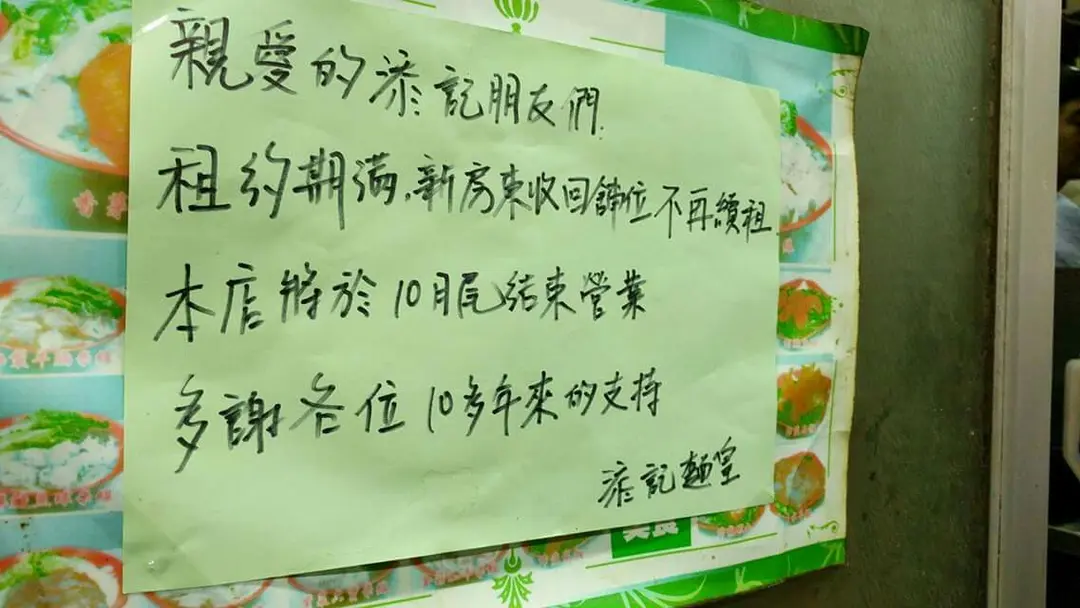 親愛的添記朋友們
租約期滿,新房東收回舖位不再續租
本店將於10月尾結束營業
多謝各位10多年來的支持
添記麵皇